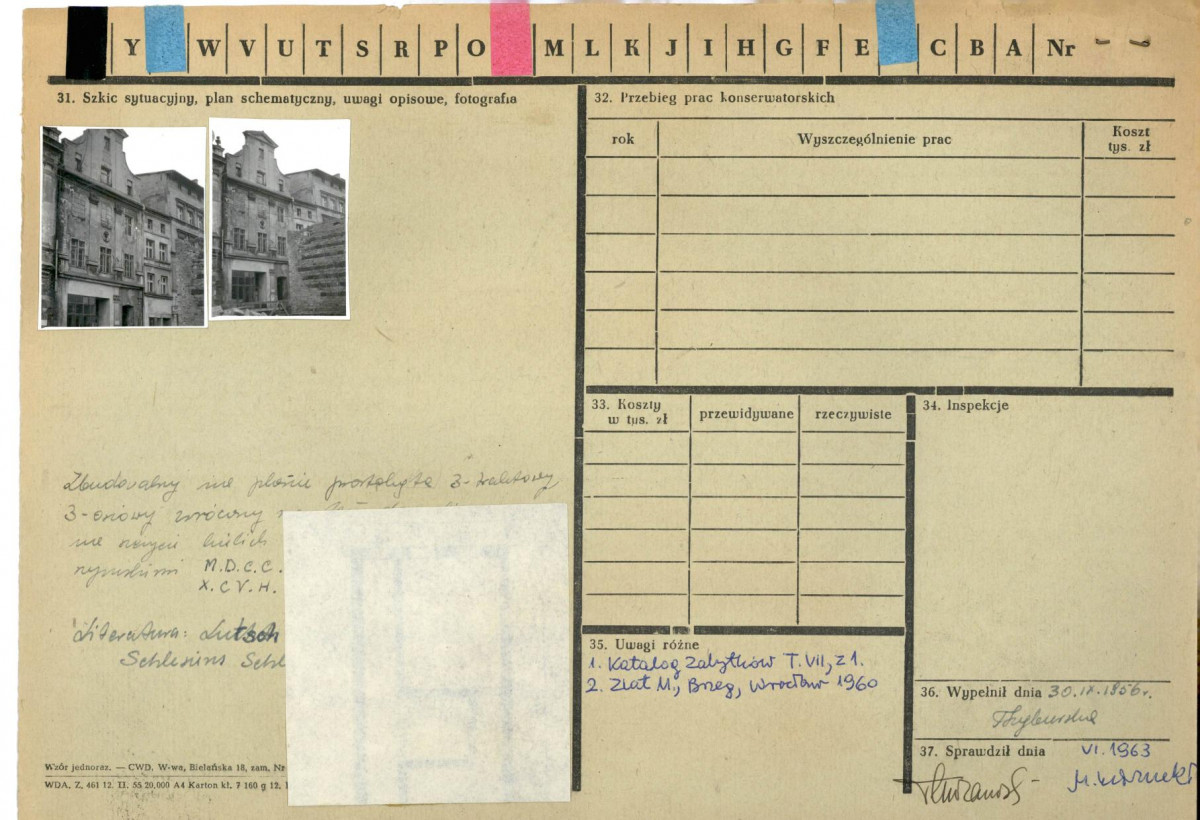 Y W V U T S R P O M L K J I H G F E C B A Nr
31. Szkic sytuacyjny, plan schematyczny, uwagi opisowe, fotografia
32. Przebieg prac konserwatorskich
rok
Wyszczególnienie prac
Koszt
tys. zł
33. Koszty
w tys. zł
przewidywane
rzeczywiste
34. Inspekcje
Zbudowany na planie prostokąta 3-traktowy
3-osiowy zwrócony
na
M.D.C.C.
X.C.V.H.
Literatura: Lutsch
Schlesiens Schl
35. Uwagi różne
1. Katalog Zabytków T. VII, z 1.
2. Zlat M., Brzeg, Wrocław 1960
36. Wypełnił dnia 30.IX.1956 r.
37. Sprawdził dnia VI.1963
Wzór jednoraz. — CWD, W-wa, Bielańska 18, zam. Nr
WDA. Z. 461 12. II. 55 20,000 A4 Karton kl. 7 160 g 12.